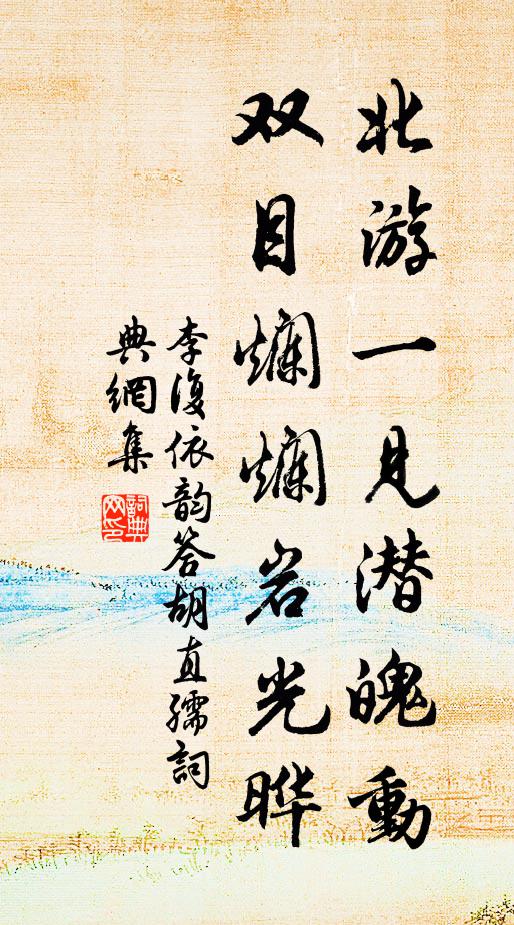 北游一见潜魄動
双目斓斓岩光晔
李復依韵答胡直孺詞
典網集
詞典网印